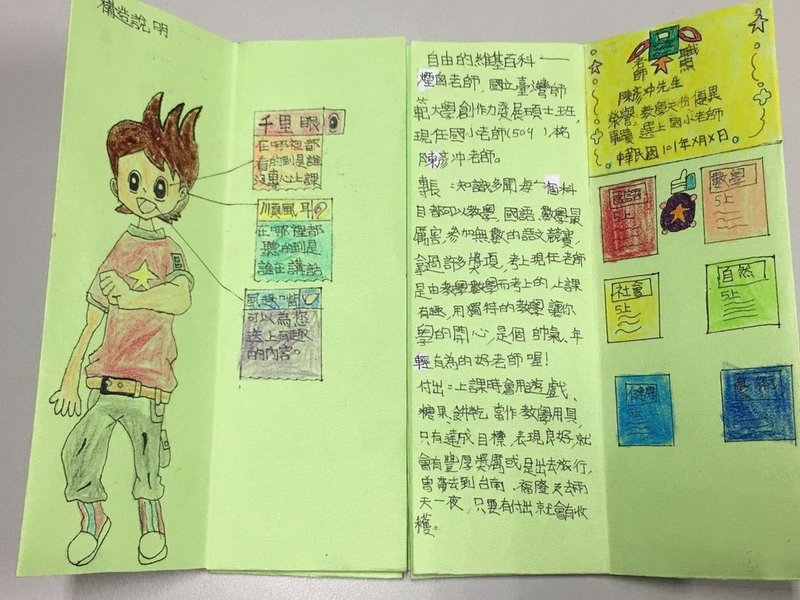 構造說明
千里眼
在哪裡都
看的到是誰
沒專心上課
順風耳
在哪裡都
聽的到是
誰在講話
風趣嘴
可以為您
送上有趣
的內容。
自由的維基百科——
煙囪老師,國立臺灣師
範大學創作力發展碩士班,
現任國小老師(509),姓
陳彥冲老師。
專長:知識多聞,每個科
目都可以教學,國語、數學最
厲害,參加無數的語文競賽,
許多獎項,考上現任老師
是由教學數學而考上的,上課
有趣,用獨特的教學讓你
學的開心,是個帥氣、年
輕有為的好老師喔!
付出:上課時會用遊戲、
糖果、餅乾,當作教學用具,
只有達成目標,表現良好,就
會有豐厚獎勵或是出去旅行,
曾帶去到台南、福隆去兩
天一夜,只要有付出就會有收
穫。
老師
職照
陳彥冲先生
榮譽:教學天份優異
事蹟:選上國小老師
中華民國101年X月X日
國語
5上
數學
5上
社會
5上
自然
5上
健康
5上
藝術
5上